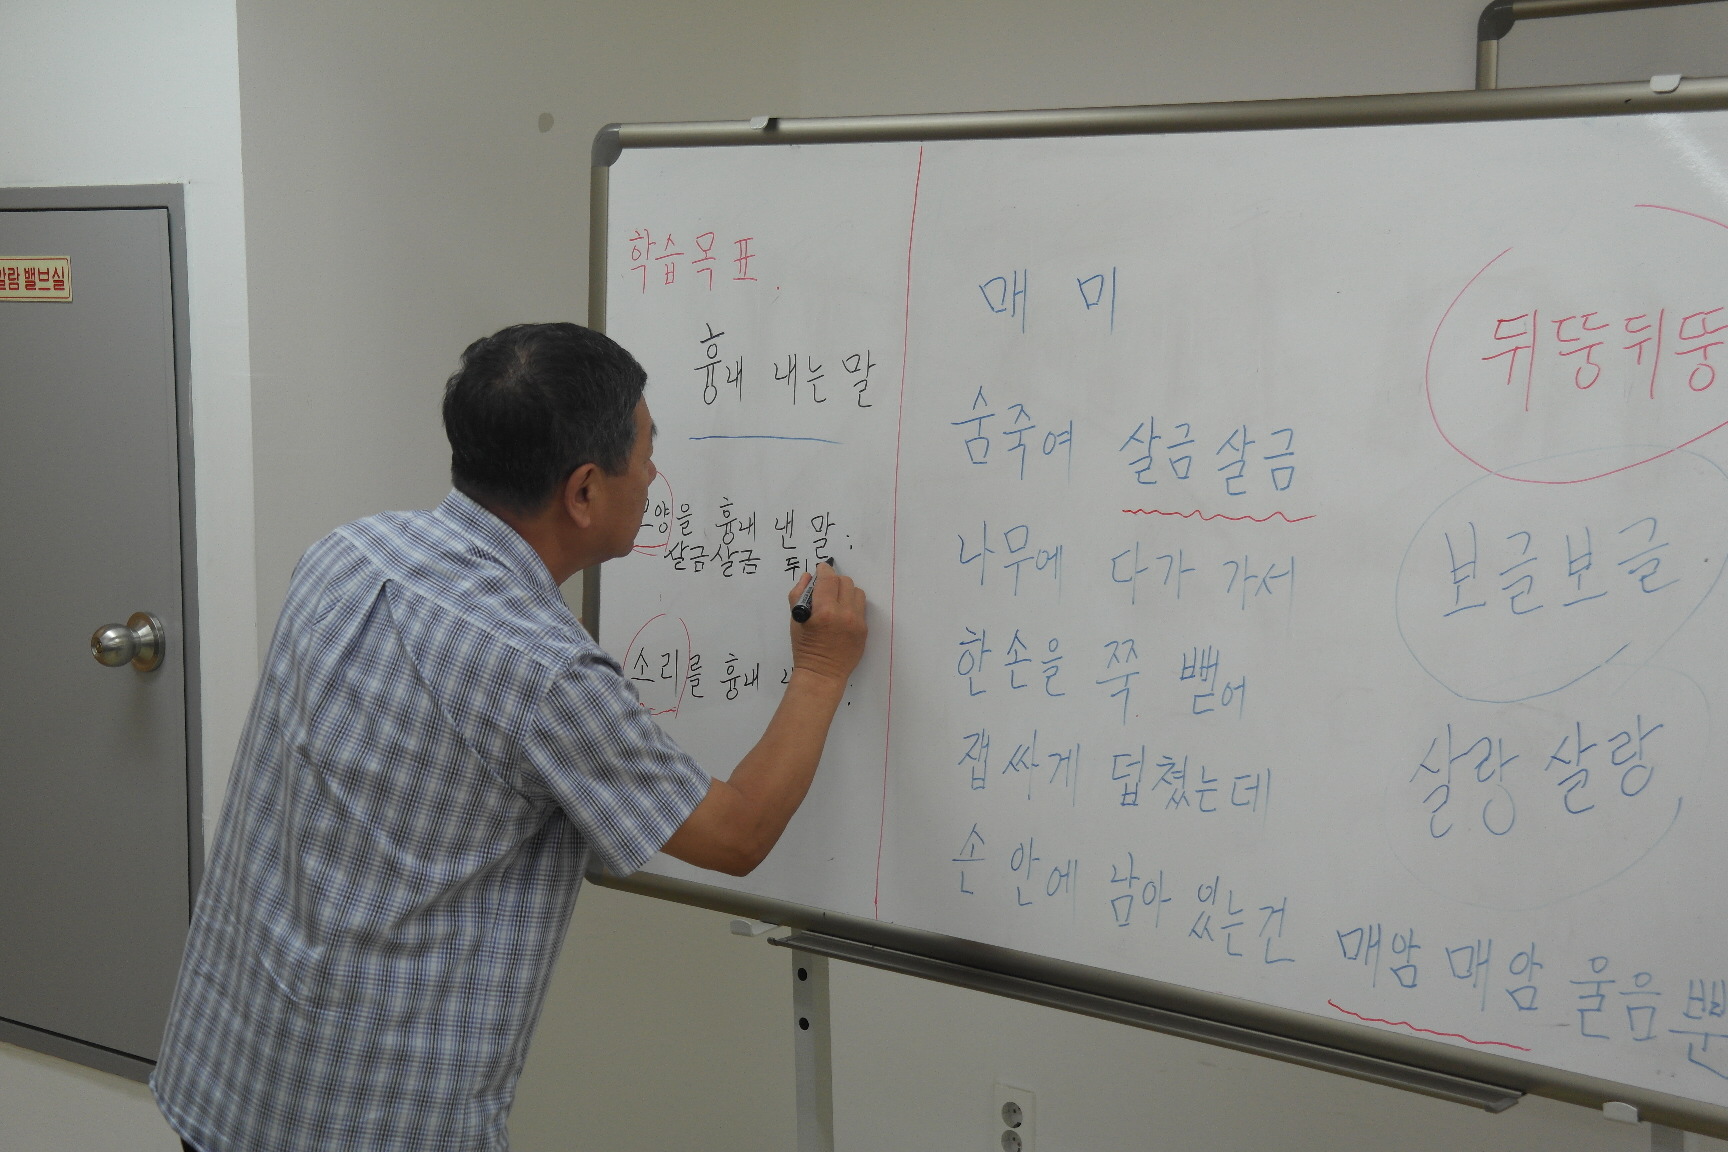 밸브실
학습목표.
흉내 내는 말
모양을 흉내 낸 말 :
살금살금
소리를 흉내
매미
숨죽여 살금살금
나무에 다가 가서
한손을 쭉 뻗어
잽싸게 덥쳤는데
손 안에 남아 있는건
매암 매암 울음뿐
뒤뚱뒤뚱
보글보글
살랑 살랑